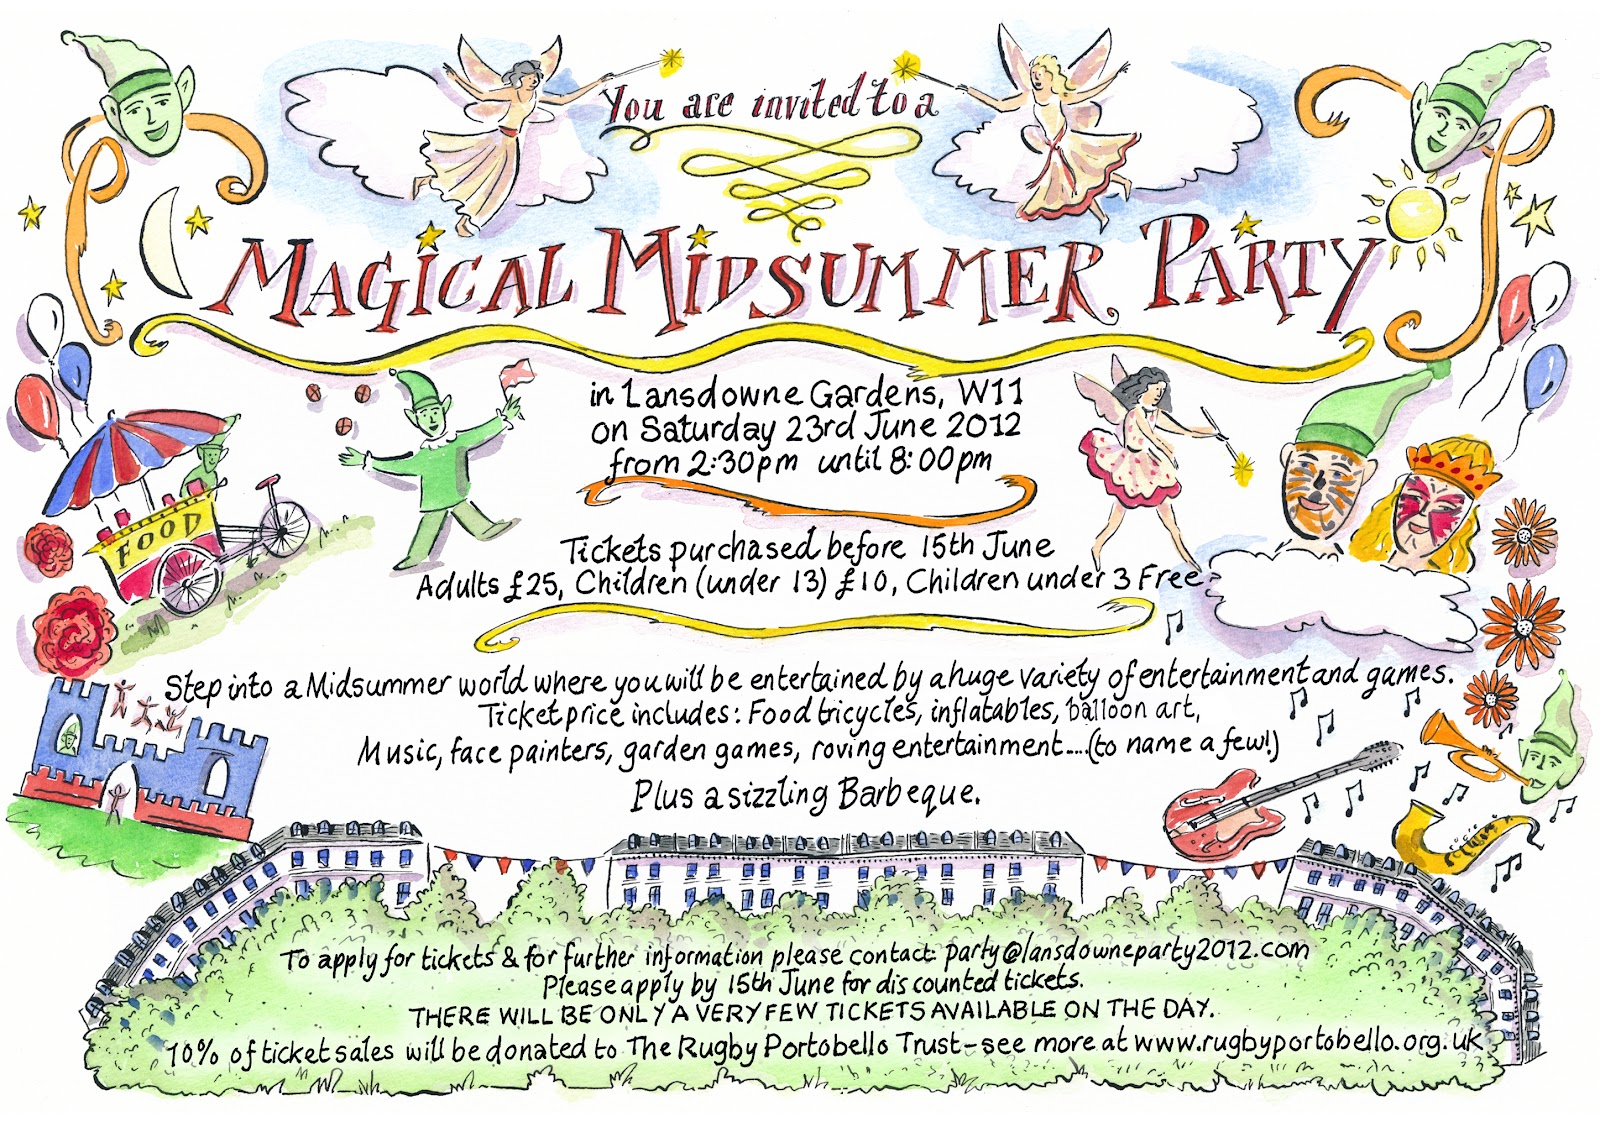 You are invited to a
MAGICAL MIDSUMMER PARTY
in Lansdowne Gardens, W11
on Saturday 23rd June 2012
from 2:30pm until 8:00pm
FOOD
Tickets purchased before 15th June
Adults £25, Children (under 13) £10, Children under 3 Free
Step into a Midsummer world where you will be entertained by a huge variety of entertainment and games.
Ticket price includes: Food tricycles, inflatables, balloon art,
Music, face painters, garden games, roving entertainment....(to name a few!)
Plus a sizzling Barbeque.
To apply for tickets & for further information please contact: party@lansdowneparty2012.com
Please apply by 15th June for discounted tickets.
THERE WILL BE ONLY A VERY FEW TICKETS AVAILABLE ON THE DAY.
10% of ticket sales will be donated to The Rugby Portobello Trust - see more at www.rugbyportobello.org.uk